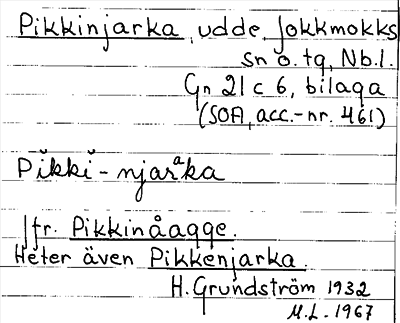 Pikkinjarka, udde, Jokkmokks
sn o. tg, Nb.l.
Gn 21 c 6, bilaga
(SOA, acc.-nr. 461)
Pĭkkĭ-njarᵃka
Jfr. Pikkinåagge.
Heter även Pikkenjarka.
H. Grundström 1932
M.L. 1967